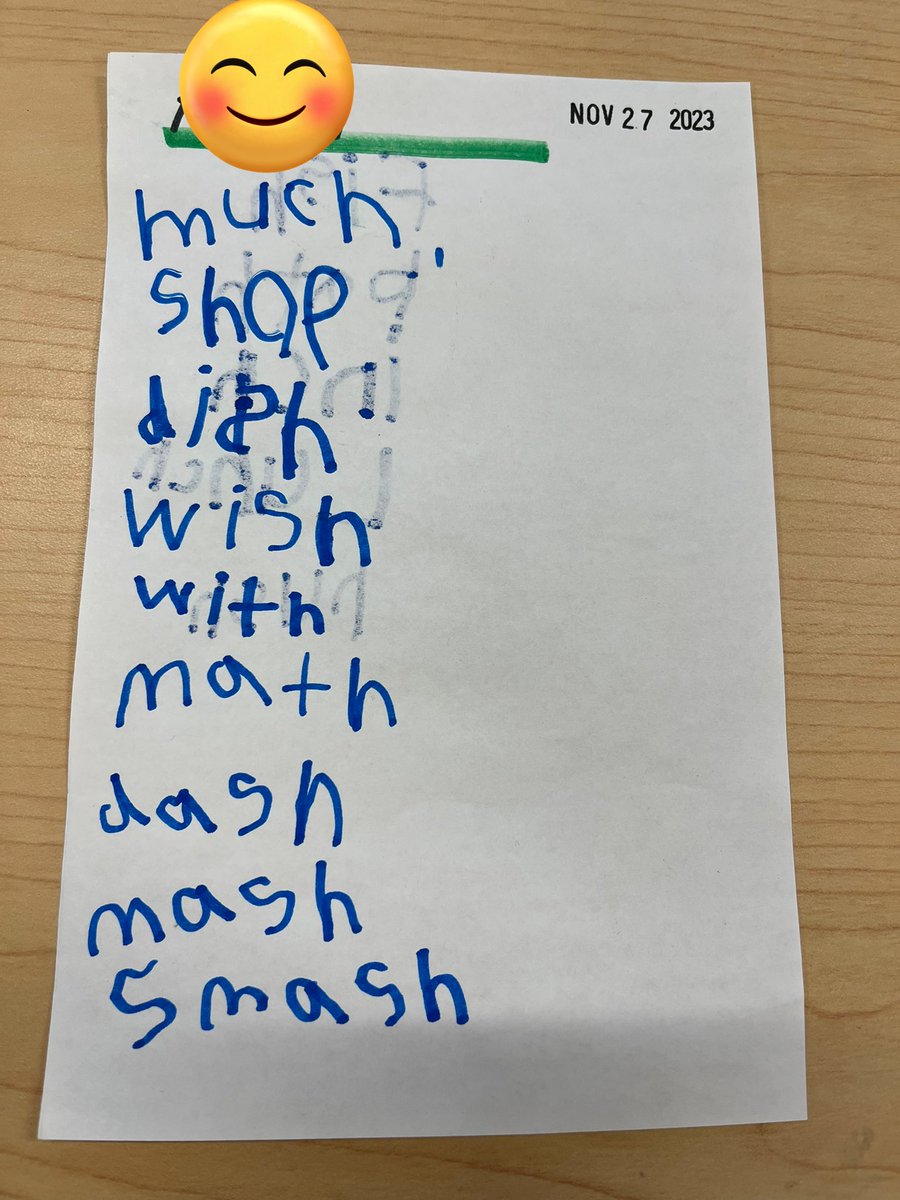 NOV 27 2023
much
shop
dish
wish
with
math
dash
mash
smash